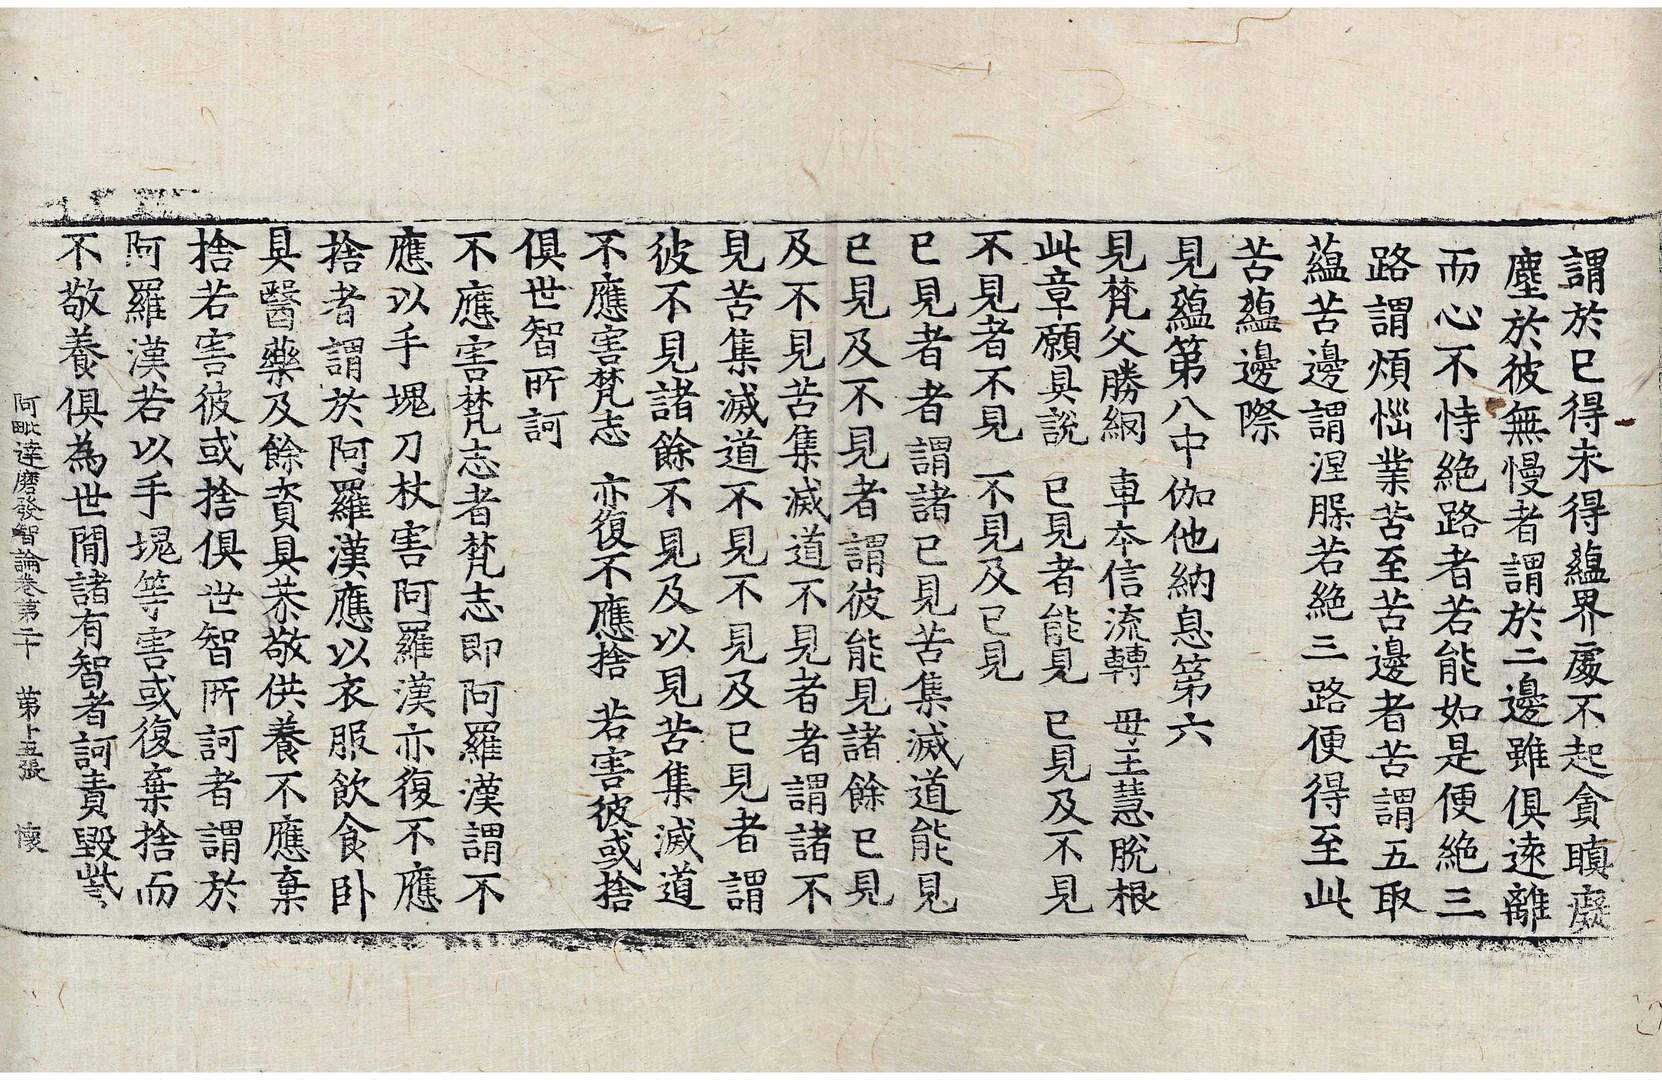 謂於已得未得蘊界處不起貪瞋癡
塵於彼無慢者謂於二邊雖俱遠離
而心不恃絶路者若能如是便絶三
路謂煩惱業苦至苦邊者苦謂五取
蘊苦邊謂涅槃若絶三路便得至此
苦蘊邊際
見蘊第八中伽他納息第六
見梵父勝網　車本信流轉　母王慧脫根
此章願具說　已見者能見　已見及不見
不見者不見　不見及已見
已見者者謂諸已見苦集滅道能見
已見及不見者謂彼能見諸餘已見
及不見苦集滅道不見者者謂諸不
見苦集滅道不見不見及已見者謂
彼不見諸餘不見及以見苦集滅道
不應害梵志　亦復不應捨　若害彼或捨
俱世智所訶
不應害梵志者梵志即阿羅漢謂不
應以手塊刀杖害阿羅漢亦復不應
捨者謂於阿羅漢應以衣服飲食卧
具醫藥及餘資具恭敬供養不應棄
捨若害彼或捨俱世智所訶者謂於
阿羅漢若以手塊等害或復棄捨而
不敬養俱為世間諸有智者訶責毀呰
阿毗達磨發智論卷第二十　第十五張　懷